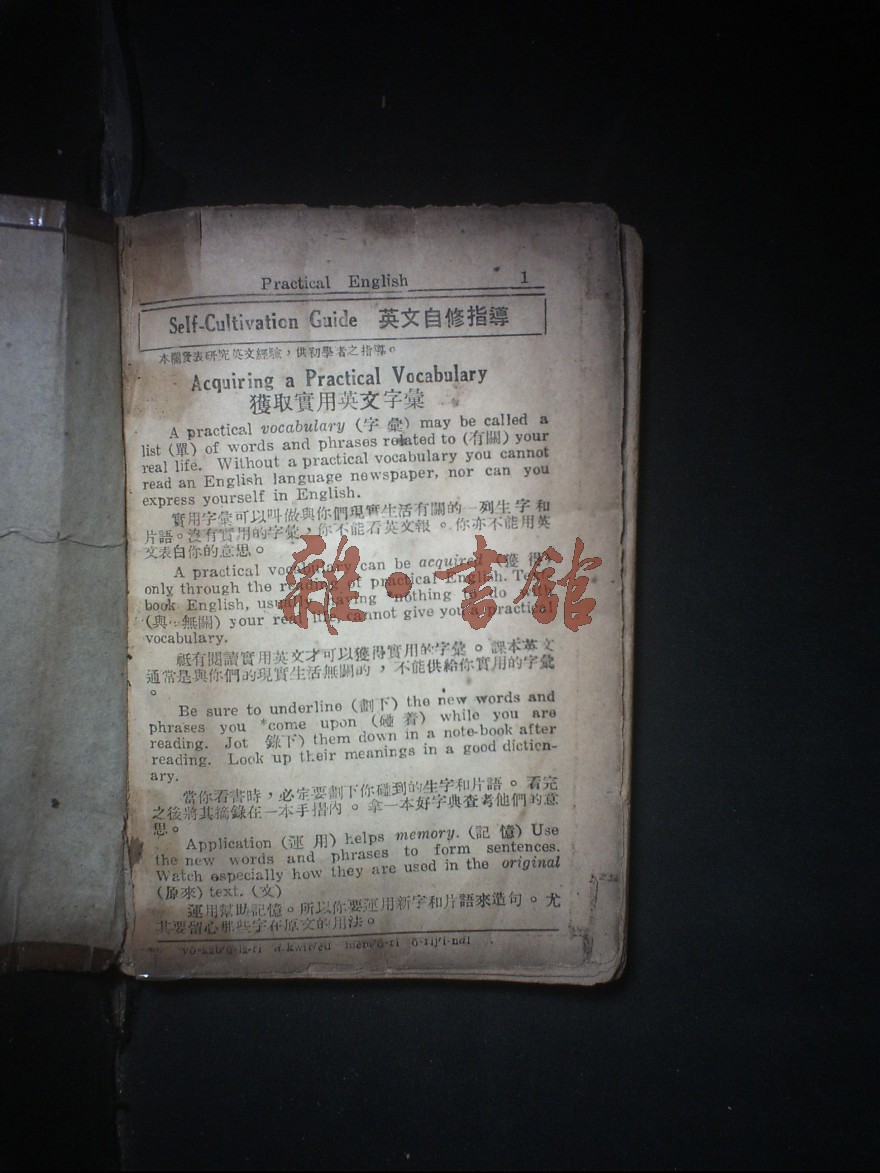 Practical English 1
Self-Cultivation Guide 英文自修指導
本欄發表研究英文經驗，供初學者之指導。
Acquiring a Practical Vocabulary
獲取實用英文字彙
A practical vocabulary (字彙) may be called a
list (單) of words and phrases related to (有關) your
real life. Without a practical vocabulary you cannot
read an English language newspaper, nor can you
express yourself in English.
實用字彙可以叫做與你們現實生活有關的一列生字和
片語。沒有實用的字彙，你不能看英文報。你亦不能用英
文表白你的意思。
A practical vocabulary can be acquired (獲得)
only through the reading of practical English. Text-
book English, usually having nothing to do with
(與‥無關) your real life, cannot give you a practical
vocabulary.
祗有閱讀實用英文才可以獲得實用的字彙。課本英文
通常是與你們的現實生活無關的，不能供給你實用的字彙
。
Be sure to underline (劃下) the new words and
phrases you *come upon (碰着) while you are
reading. Jot 錄下) them down in a note-book after
reading. Look up their meanings in a good diction-
ary.
當你看書時，必定要劃下你碰到的生字和片語。看完
之後將其摘錄在一本手摺內。拿一本好字典查考他們的意
思。
Application (運用) helps memory. (記憶) Use
the new words and phrases to form sentences.
Watch especially how they are used in the original
(原來) text. (文)
運用幫助記憶。所以你要運用新字和片語來造句。尤
其要留心那些字在原文的用法。
雜·書館